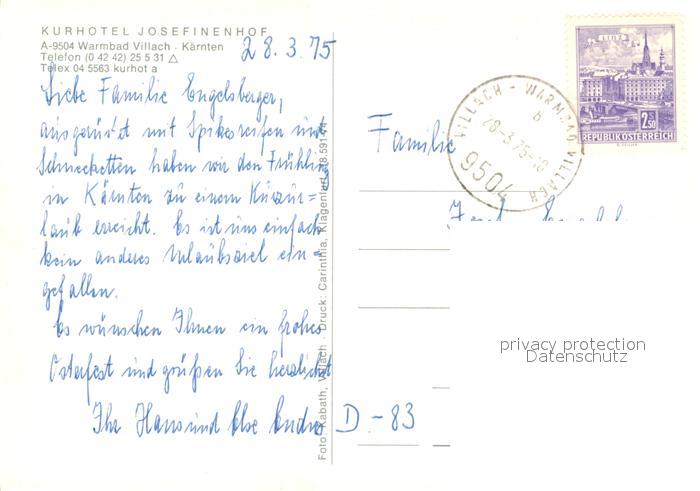 KURHOTEL JOSEFINENHOF
A-9504 Warmbad Villach · Kärnten
Telefon (0 42 42) 25 5 31 △
Telex 04 5563 kurhot a
28.3.75
Liebe Familie Engelsberger,
ausgerüstet mit Spikesreifen und
Schneeketten haben wir den Frühling
in Kärnten zu einem Kurzur=
laub erreicht. Es ist uns einfach
kein anderes Urlaubsziel ein=
gefallen.
Es wünschen Ihnen ein frohes
Osterfest und grüßen Sie herzlichst
Ihr Hans und Else
Foto: Kabath, Villach · Druck: Carinthia, Klagenfurt
Familie
D-83
VILLACH - WARMBAD VILLACH
b
28.-3.75-18
9504
LINZ
2.50
REPUBLIK ÖSTERREICH
privacy protection
Datenschutz